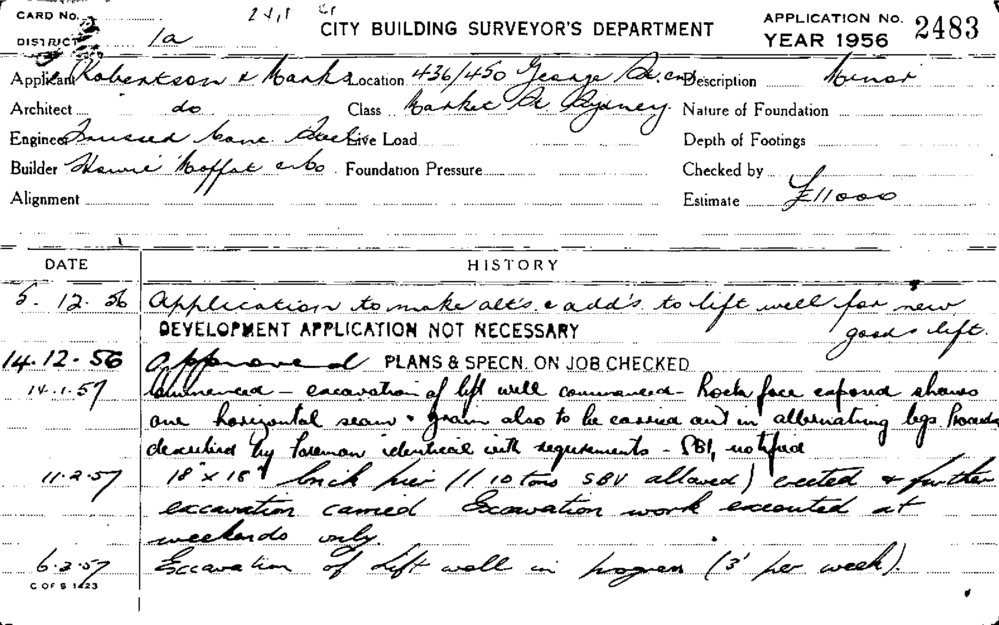 CARD No.
DISTRICT 1a
CITY BUILDING SURVEYOR'S DEPARTMENT
APPLICATION No. 2483
YEAR 1956
Applicant Robertson & Marks Location 436/450 George St. cnr Description Minor
Architect do Class Market St Sydney. Nature of Foundation
Engineer Trussed Conc. Steel Live Load Depth of Footings
Builder Howie Moffat & Co Foundation Pressure Checked by
Alignment Estimate £11000
DATE HISTORY
5. 12. 56 Application to make alt's. & add's. to lift well for new
DEVELOPMENT APPLICATION NOT NECESSARY goods lift.
14.12.56 Approved PLANS & SPECN. ON JOB CHECKED
14.1.57 Commenced - excavation of lift well commenced - Rock face exposed shows
one horizontal seam & grain also to be carried out in alternating legs. Procedure
described by Foreman identical with requirements - SBI, notified
11.2.57 18" x 18" brick pier (110 tons SBV allowed) erected & further
excavation carried Excavation work executed at
weekends only.
6.3.57 Excavation of lift well in progress (3' per week).
C OF S 1423